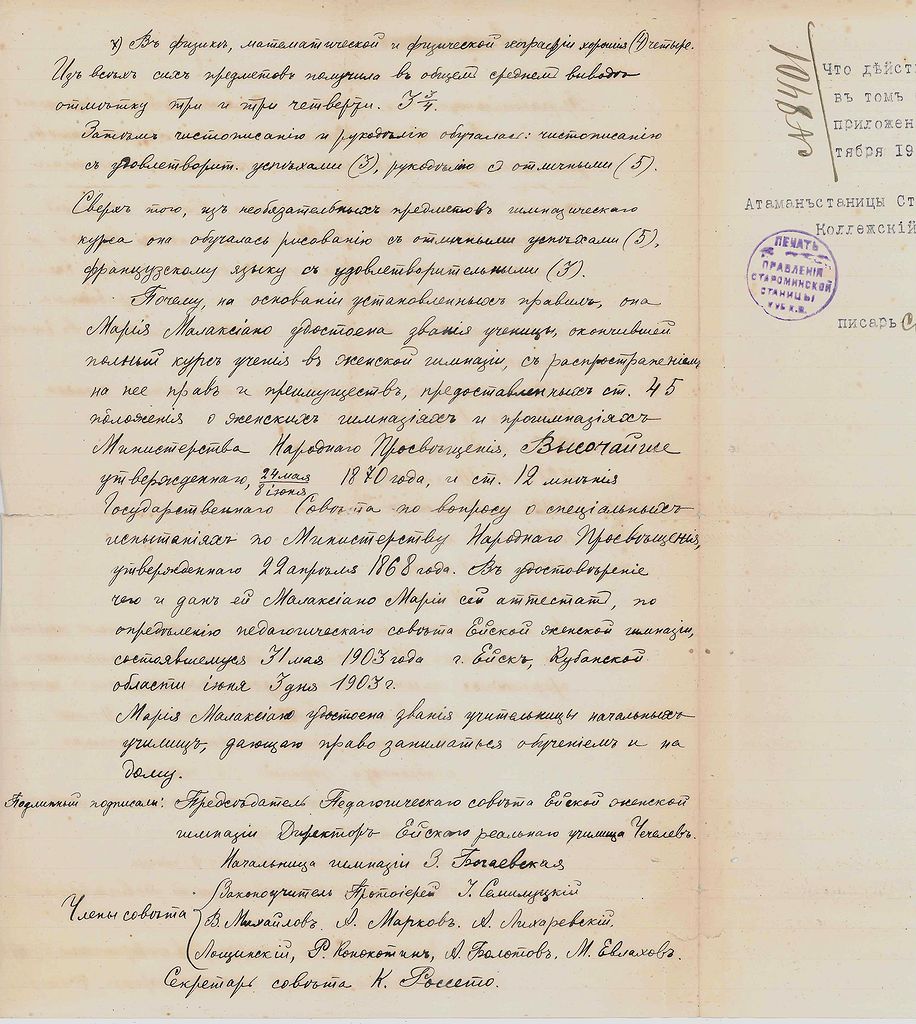 х) Въ физикѣ, математической и физической географіи хорошія (4) четыре.
Изъ всѣхъ сихъ предметовъ получила въ общемъ среднемъ выводѣ
отмѣтку три и три четверти. 3 3/4.
Затѣмъ чистописанію и рукодѣлію обучалась: чистописанію
съ удовлетворит. успѣхами (3), рукодѣлію съ отличными (5).
Сверхъ того, изъ необязательныхъ предметовъ гимназическаго
курса она обучалась рисованію съ отличными успѣхами (5),
французскому языку съ удовлетворительными (3).
Почему, на основаніи установленныхъ правилъ, она
Марія Малаксіано удостоена званія ученицы, окончившей
полный курсъ ученія въ женской гимназіи, съ распространеніемъ
на нее правъ и преимуществъ, предоставленныхъ ст. 45
положенія о женскихъ гимназіяхъ и прогимназіяхъ
Министерства Народнаго Просвѣщенія, Высочайше
утвержденнаго, 24 мая/8 іюня 1870 года, и ст. 12 мнѣнія
Государственнаго Совѣта по вопросу о спеціальныхъ
испытаніяхъ по Министерству Народнаго Просвѣщенія,
утвержденнаго 22 апрѣля 1868 года. Въ удостовѣреніе
чего и данъ ей Малаксіано Маріи сей аттестатъ, по
опредѣленію педагогическаго совѣта Ейской женской гимназіи,
состоявшемуся 31 мая 1903 года г. Ейскъ, Кубанской
области іюня 3 дня 1903 г.
Марія Малаксіано удостоена званія учительницы начальныхъ
училищъ, дающаго право заниматься обученіемъ и на
дому.
Подлинный подписали: Предсѣдатель Педагогическаго совѣта Ейской женской
гимназіи Директоръ Ейскаго реальнаго училища Чечелевъ.
Начальница гимназіи З. Богаевская
Члены совѣта
Законоучитель Протоіерей І. Семилуцкій
В. Михайловъ. А. Марковъ. А. Лихаревскій.
Лощинскій, Р. Конокотинъ, А. Болотовъ. М. Евлаховъ.
Секретарь совѣта К. Россето.
№ 8401
Что дѣйст
въ томъ
приложен
тября 19
Атаманъ станицы Ст
Коллежскій
ПЕЧАТЬ
ПРАВЛЕНІЯ
СТАРОМИНСКОЙ
СТАНИЦЫ
КУБ.К.В.
писарь